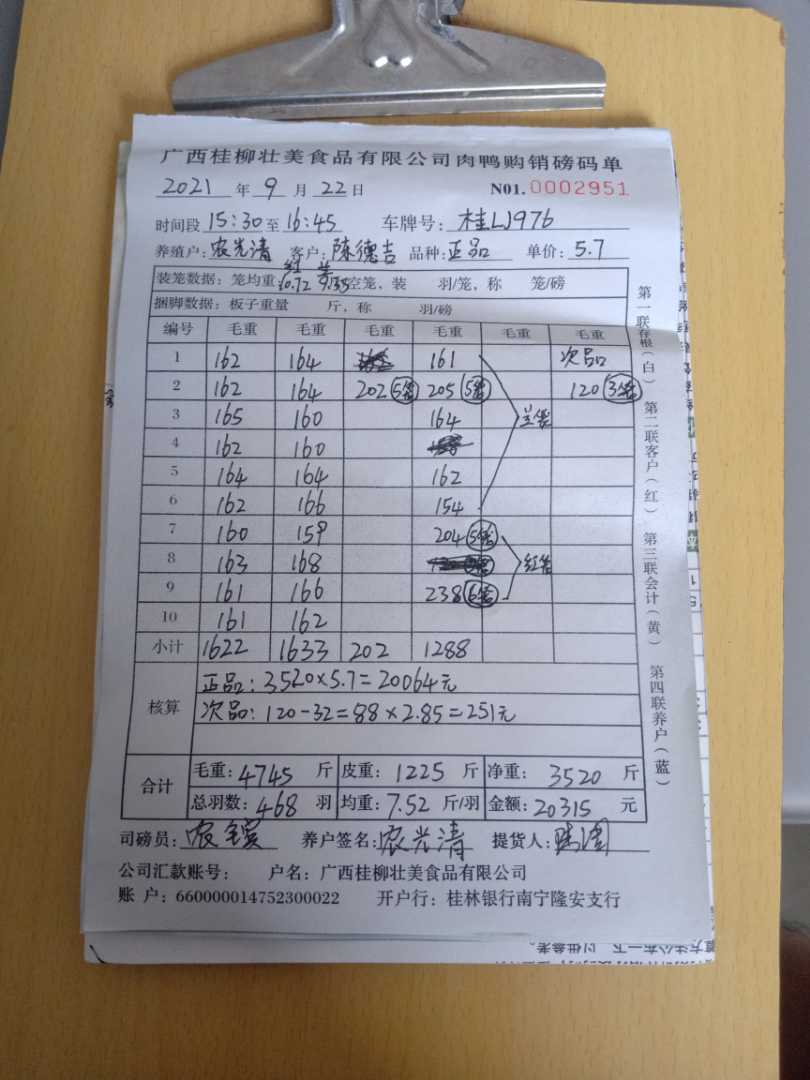 广西桂柳壮美食品有限公司肉鸭购销磅码单
2021 年 9 月 22 日 N01.0002951
时间段 15:30 至 16:45 车牌号: 桂LJ976
养殖户: 农光清 客户: 陈德吉 品种: 正品 单价: 5.7
红 兰
装笼数据: 笼均重 10.72 9.35 空笼、装 羽/笼,称 笼/磅
捆脚数据: 板子重量 斤,称 羽/磅
编号 毛重 毛重 毛重 毛重 毛重 毛重
1 162 164 161 次品
2 162 164 202 5笼 205 5笼 120 3笼
3 165 160 164 兰笼
4 162 160
5 164 164 162
6 162 166 154
7 160 159 204 5笼
8 163 168 红笼
9 161 166 238 6笼
10 161 162
小计 1622 1633 202 1288
核算 正品: 3520×5.7=20064元
次品: 120-32=88×2.85=251元
合计 毛重: 4745 斤 皮重: 1225 斤 净重: 3520 斤
总羽数: 468 羽 均重: 7.52 斤/羽 金额: 20315 元
司磅员: 养户签名: 农光清 提货人:
公司汇款账号: 户名: 广西桂柳壮美食品有限公司
账 户: 660000014752300022 开户行: 桂林银行南宁隆安支行
第一联存根(白) 第二联客户(红) 第三联会计(黄) 第四联养户(蓝)